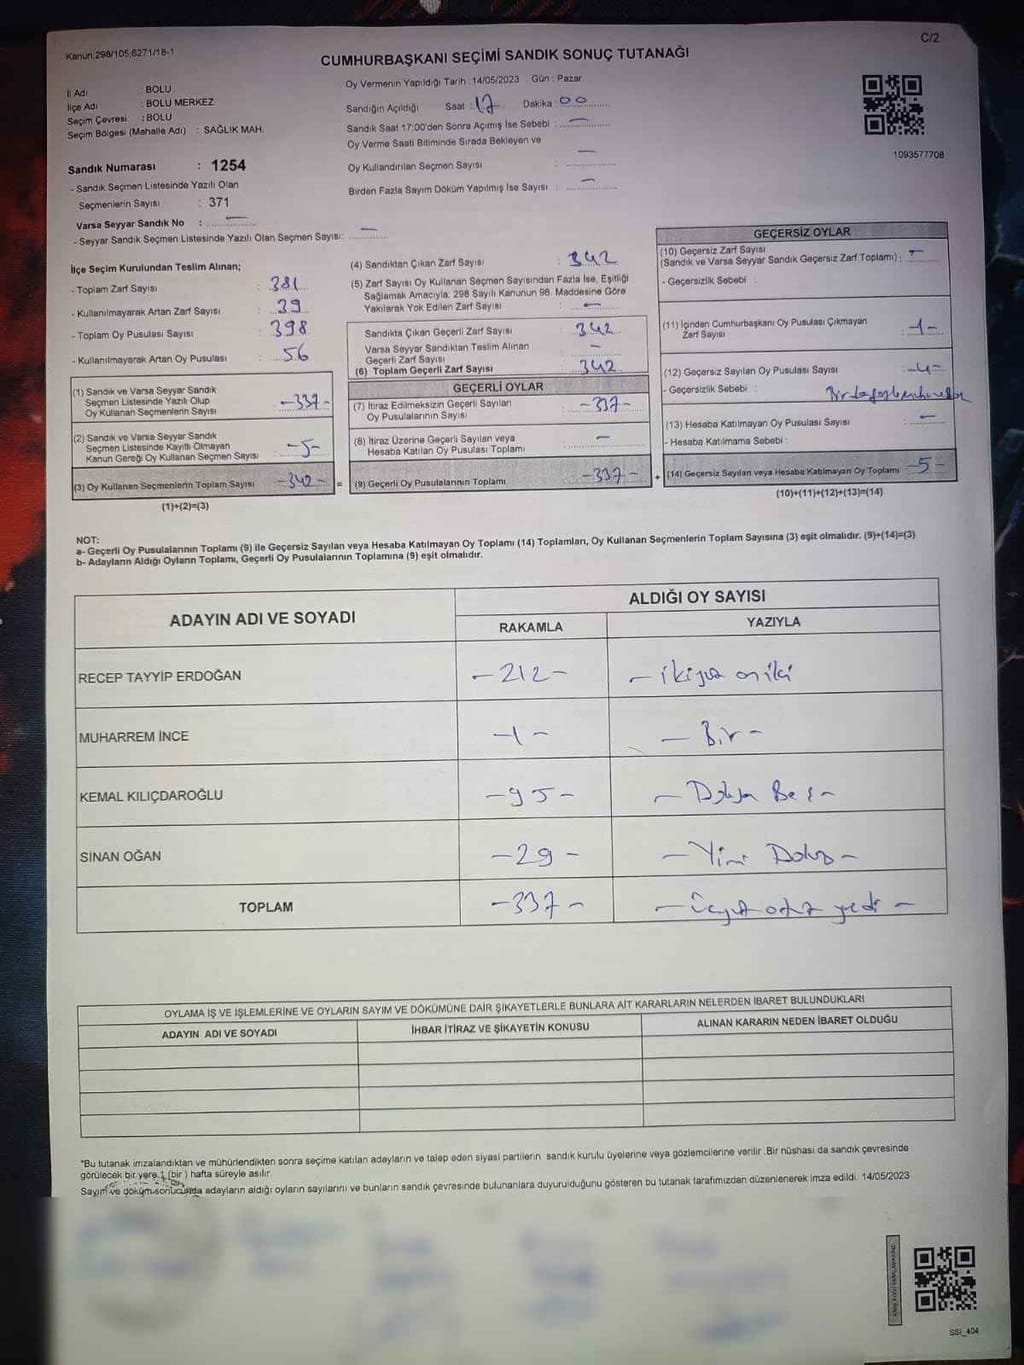 Kanun:298/105,6271/18-1
C/2
CUMHURBAŞKANI SEÇİMİ SANDIK SONUÇ TUTANAĞI
İl Adı : BOLU
İlçe Adı : BOLU MERKEZ
Seçim Çevresi : BOLU
Seçim Bölgesi (Mahalle Adı) : SAĞLIK MAH.
Oy Vermenin Yapıldığı Tarih :14/05/2023 Gün : Pazar
Sandığın Açıldığı Saat : 17 Dakika : 00
Sandık Saat 17:00'den Sonra Açımış İse Sebebi : —
Oy Verme Saati Bitiminde Sırada Bekleyen ve
Oy Kullandırılan Seçmen Sayısı : —
Birden Fazla Sayım Döküm Yapılmış İse Sayısı : —
1093577708
Sandık Numarası : 1254
- Sandık Seçmen Listesinde Yazılı Olan
Seçmenlerin Sayısı : 371
Varsa Seyyar Sandık No : —
- Seyyar Sandık Seçmen Listesinde Yazılı Olan Seçmen Sayısı: —
İlçe Seçim Kurulundan Teslim Alınan;
- Toplam Zarf Sayısı : 381
- Kullanılmayarak Artan Zarf Sayısı : 39
- Toplam Oy Pusulası Sayısı : 398
- Kullanılmayarak Artan Oy Pusulası : 56
(1) Sandık ve Varsa Seyyar Sandık
Seçmen Listesinde Yazılı Olup
Oy Kullanan Seçmenlerin Sayısı -337-
(2) Sandık ve Varsa Seyyar Sandık
Seçmen Listesinde Kayıtlı Olmayan
Kanun Gereği Oy Kullanan Seçmen Sayısı -5-
(3) Oy Kullanan Seçmenlerin Toplam Sayısı -342- =
(1)+(2)=(3)
(4) Sandıktan Çıkan Zarf Sayısı : 342
(5) Zarf Sayısı Oy Kullanan Seçmen Sayısından Fazla İse, Eşitliği
Sağlamak Amacıyla, 298 Sayılı Kanunun 98. Maddesine Göre
Yakılarak Yok Edilen Zarf Sayısı : —
Sandıkta Çıkan Geçerli Zarf Sayısı : 342
Varsa Seyyar Sandıktan Teslim Alınan
Geçerli Zarf Sayısı : —
(6) Toplam Geçerli Zarf Sayısı : 342
GEÇERLİ OYLAR
(7) İtiraz Edilmeksizin Geçerli Sayılan
Oy Pusulalarının Sayısı : -337-
(8) İtiraz Üzerine Geçerli Sayılan veya
Hesaba Katılan Oy Pusulası Toplamı : —
(9) Geçerli Oy Pusulalarının Toplamı : -337- +
GEÇERSİZ OYLAR
(10) Geçersiz Zarf Sayısı
(Sandık ve Varsa Seyyar Sandık Geçersiz Zarf Toplamı) : —
- Geçersizlik Sebebi :
(11) İçinden Cumhurbaşkanı Oy Pusulası Çıkmayan
Zarf Sayısı : -1-
(12) Geçersiz Sayılan Oy Pusulası Sayısı : -4-
- Geçersizlik Sebebi :
(13) Hesaba Katılmayan Oy Pusulası Sayısı : —
- Hesaba Katılmama Sebebi :
(14) Geçersiz Sayılan veya Hesaba Katılmayan Oy Toplamı -5-
(10)+(11)+(12)+(13)=(14)
NOT:
a- Geçerli Oy Pusulalarının Toplamı (9) ile Geçersiz Sayılan veya Hesaba Katılmayan Oy Toplamı (14) Toplamları, Oy Kullanan Seçmenlerin Toplam Sayısına (3) eşit olmalıdır. (9)+(14)=(3)
b- Adayların Aldığı Oyların Toplamı, Geçerli Oy Pusulalarının Toplamına (9) eşit olmalıdır.
ADAYIN ADI VE SOYADI
ALDIĞI OY SAYISI
RAKAMLA YAZIYLA
RECEP TAYYİP ERDOĞAN -212- - ikiyüz oniki
MUHARREM İNCE -1- - Bir -
KEMAL KILIÇDAROĞLU -95- - Doksan Beş -
SİNAN OĞAN -29- - Yirmi Dokuz -
TOPLAM -337- - üçyüz otuz yedi -
OYLAMA İŞ VE İŞLEMLERİNE VE OYLARIN SAYIM VE DÖKÜMÜNE DAİR ŞİKAYETLERLE BUNLARA AİT KARARLARIN NELERDEN İBARET BULUNDUKLARI
ADAYIN ADI VE SOYADI İHBAR İTİRAZ VE ŞİKAYETİN KONUSU ALINAN KARARIN NEDEN İBARET OLDUĞU
*Bu tutanak imzalandıktan ve mühürlendikten sonra seçime katılan adayların ve talep eden siyasi partilerin sandık kurulu üyelerine veya gözlemcilerine verilir .Bir nüshası da sandık çevresinde
görülecek bir yere 1 (bir ) hafta süreyle asılır.
Sayım ve döküm sonucunda adayların aldığı oyların sayılarını ve bunların sandık çevresinde bulunanlara duyurulduğunu gösteren bu tutanak tarafımızdan düzenlenerek imza edildi. 14/05/2023
SSI_404